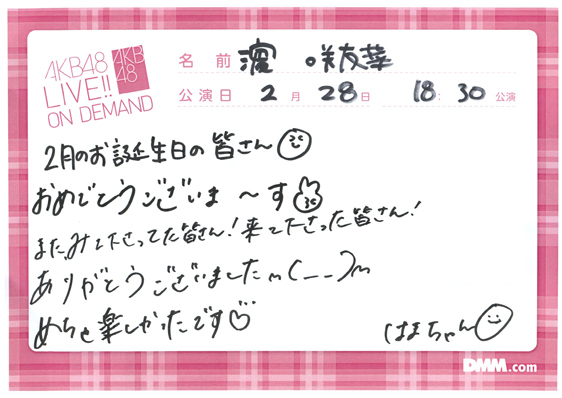 AKB48
LIVE!!
ON DEMAND
AKB
48
名前 濵 咲友菜
公演日 2月 28日 18:30 公演
2月のお誕生日の皆さん
おめでとうございま〜す
またみて下さってた皆さん!来て下さった皆さん!
ありがとうございましたm(__)m
めちゃ楽しかったです♡
はまちゃん
DMM.com